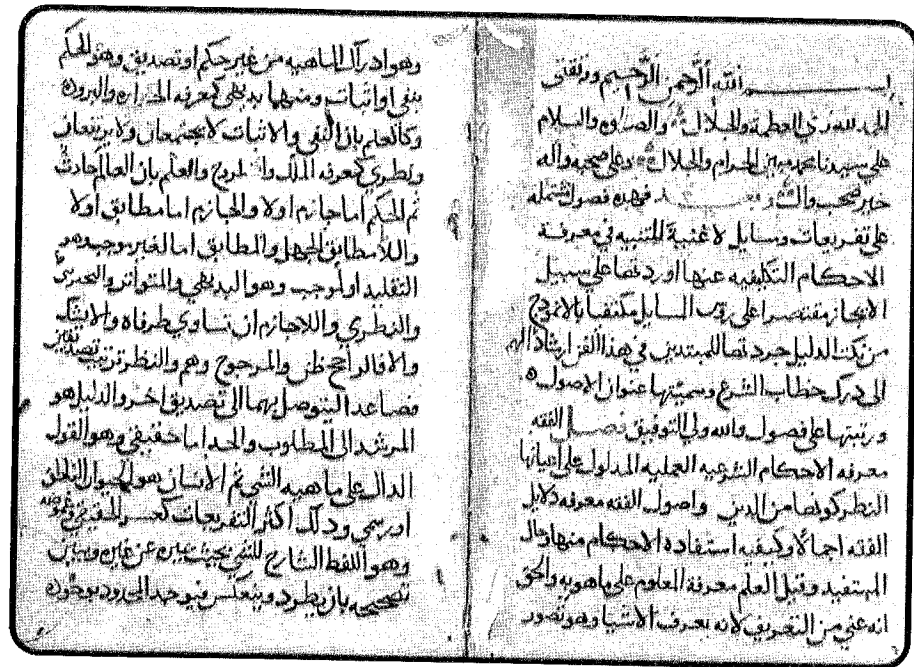 بسم الله الرحمن الرحيم وبه ثقتي
الحمد لله ذي العظمة والجلال والصلوة والسلام
علي سيدنا محمد مبين الحرام والحلال وعلي صحبه واله
خير صحب وال وبعد فهذه فصول مشتمله
علي تفريعات ومسايل لا غنية للمتنبه في معرفة
الاحكام التكليفيه عنها اوردتها علي سبيل
الايجاز مقتصرا علي روس المسايل مكتفيا بالانموذج
من نكت الدليل جردتها للمبتدين في هذا الفن ارشادا لهم
الي درك خطاب الشرع وسميتها عنوان الاصول
ورتبتها علي فصول والله ولي التوفيق فصل الفقه
معرفه الاحكام الشرعيه العمليه المدلول علي اعيانها
النظر كونها من الدين واصول الفقه معرفه دلايل
الفقه اجمالا وكيفيه استفاده الاحكام منها وحال
المستفيد وقيل العلم معرفة المعلوم علي ما هو به والحق
انه غني من التعريف لانه به تعرف الاشيا وهو تصور
وهو ادراك الماهيه من غير حكم او تصديق وهو الحكم
بنفي او اثبات ومنهما بديهي كمعرفه الحراره والبروده
وكالعلم بان النفي والاثبات لا يجتمعان ولا يرتفعان
ونظري كمعرفه الملك والروح والعلم بان العالم حادث
ثم الحكم اما جازم او لا والجازم اما مطابق او لا
واللا مطابق الجهل والمطابق اما لغير موجب وهو
التقليد او لموجب وهو البديهي والمتواتر والتجربي
والنظري واللاجازم ان تساوي طرفاه والا شك
والا فالراجح ظن والمرجوح وهم والنظر ترتيب تصديقين
فصاعدا ليتوصل بهما الي تصديق اخر والدليل هو
المرشد الي المطلوب والحد اما حقيقي وهو القول
الدال علي ماهيه الشي ثم الانسان هو الحيوان الناطق
او رسمي ودلك اكثر التفريعات كعسر الحقيقي وغموضه
وهو اللفظ الشارح للشي بحيث يميزه عن غيره ويباين
تصحيحه بان يطرد وينعكس فيوجد المحدود بوجوده